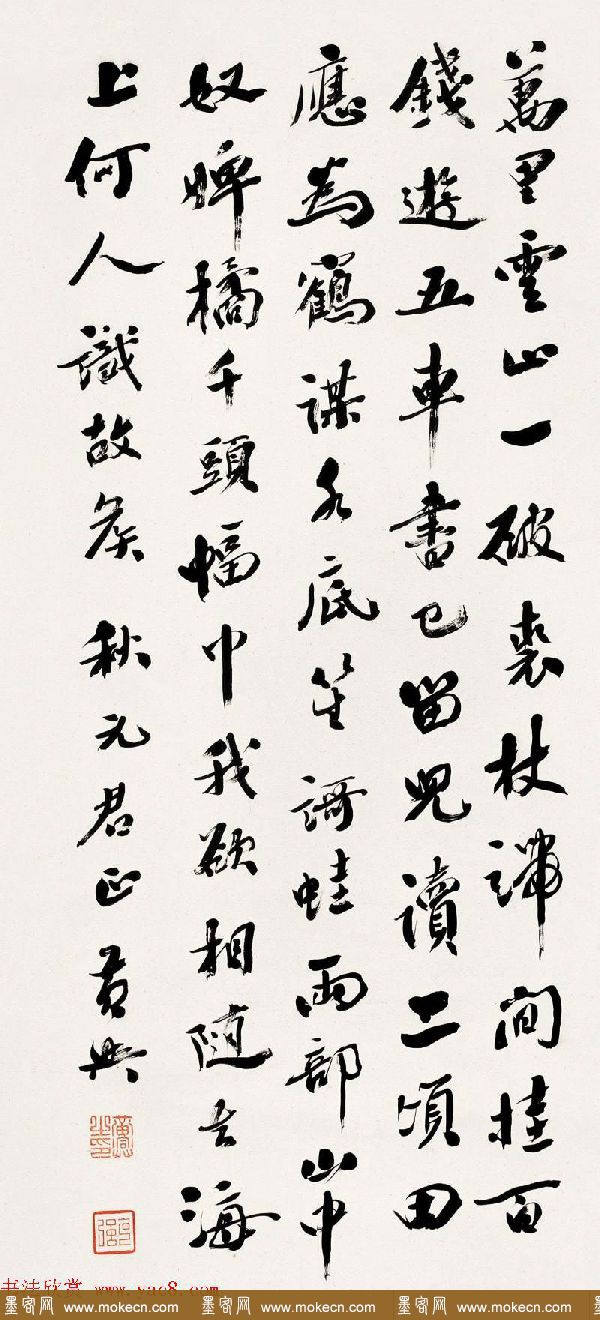 萬里雲山一破裘杖端閒挂百
錢遊五車書已留兒讀二頃田
應為鶴謀水底笙謌蛙兩部山中
奴婢橘千頭幅巾我欲相隨去海
上何人識故矦 秋元君正 黃興
书法欣赏 www.yac8.com
墨客网 www.mokecn.com 墨客网 www.mokecn.com 墨客网 www.mokecn.com 墨客网